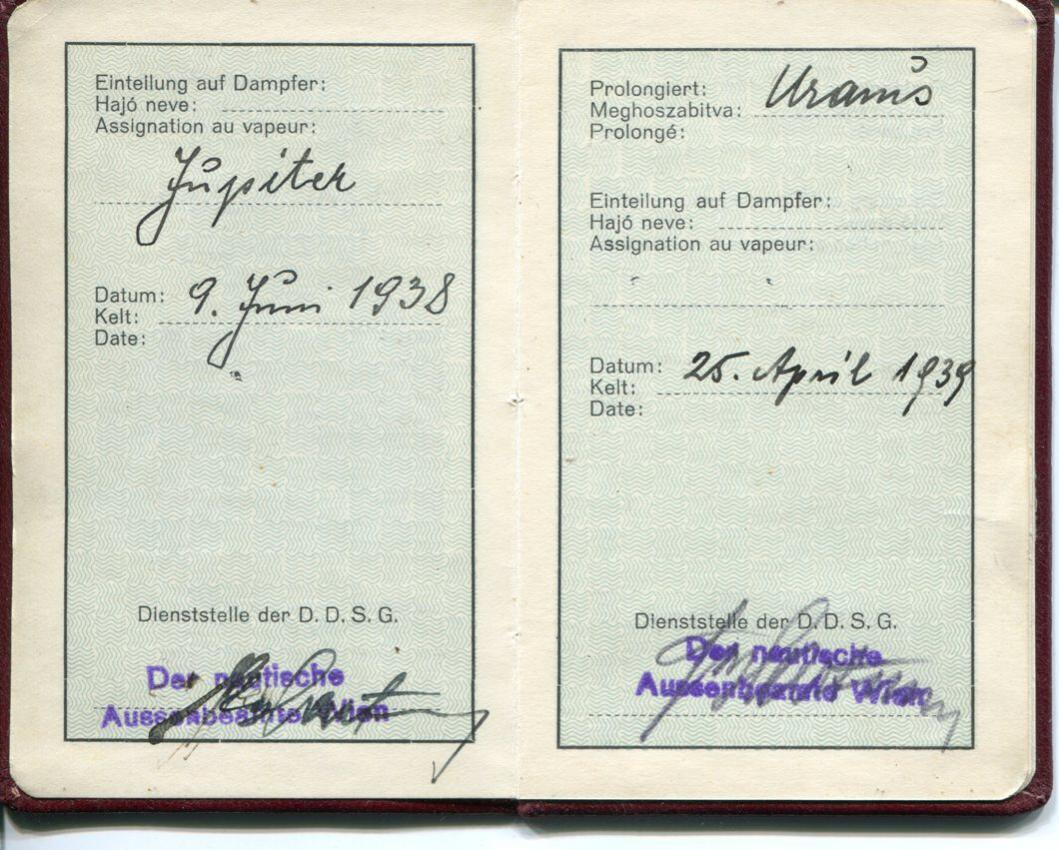 Einteilung auf Dampfer:
Hajó neve:
Assignation au vapeur:
Jupiter
Datum: 9. Juni 1938
Kelt:
Date:
Dienststelle der D. D. S. G.
Der nautische
Aussenbeamte Wien
Prolongiert: Uranus
Meghoszabitva:
Prolongé:
Einteilung auf Dampfer:
Hajó neve:
Assignation au vapeur:
Datum: 25. April 1939
Kelt:
Date:
Dienststelle der D. D. S. G.
Der nautische
Aussenbeamte Wien